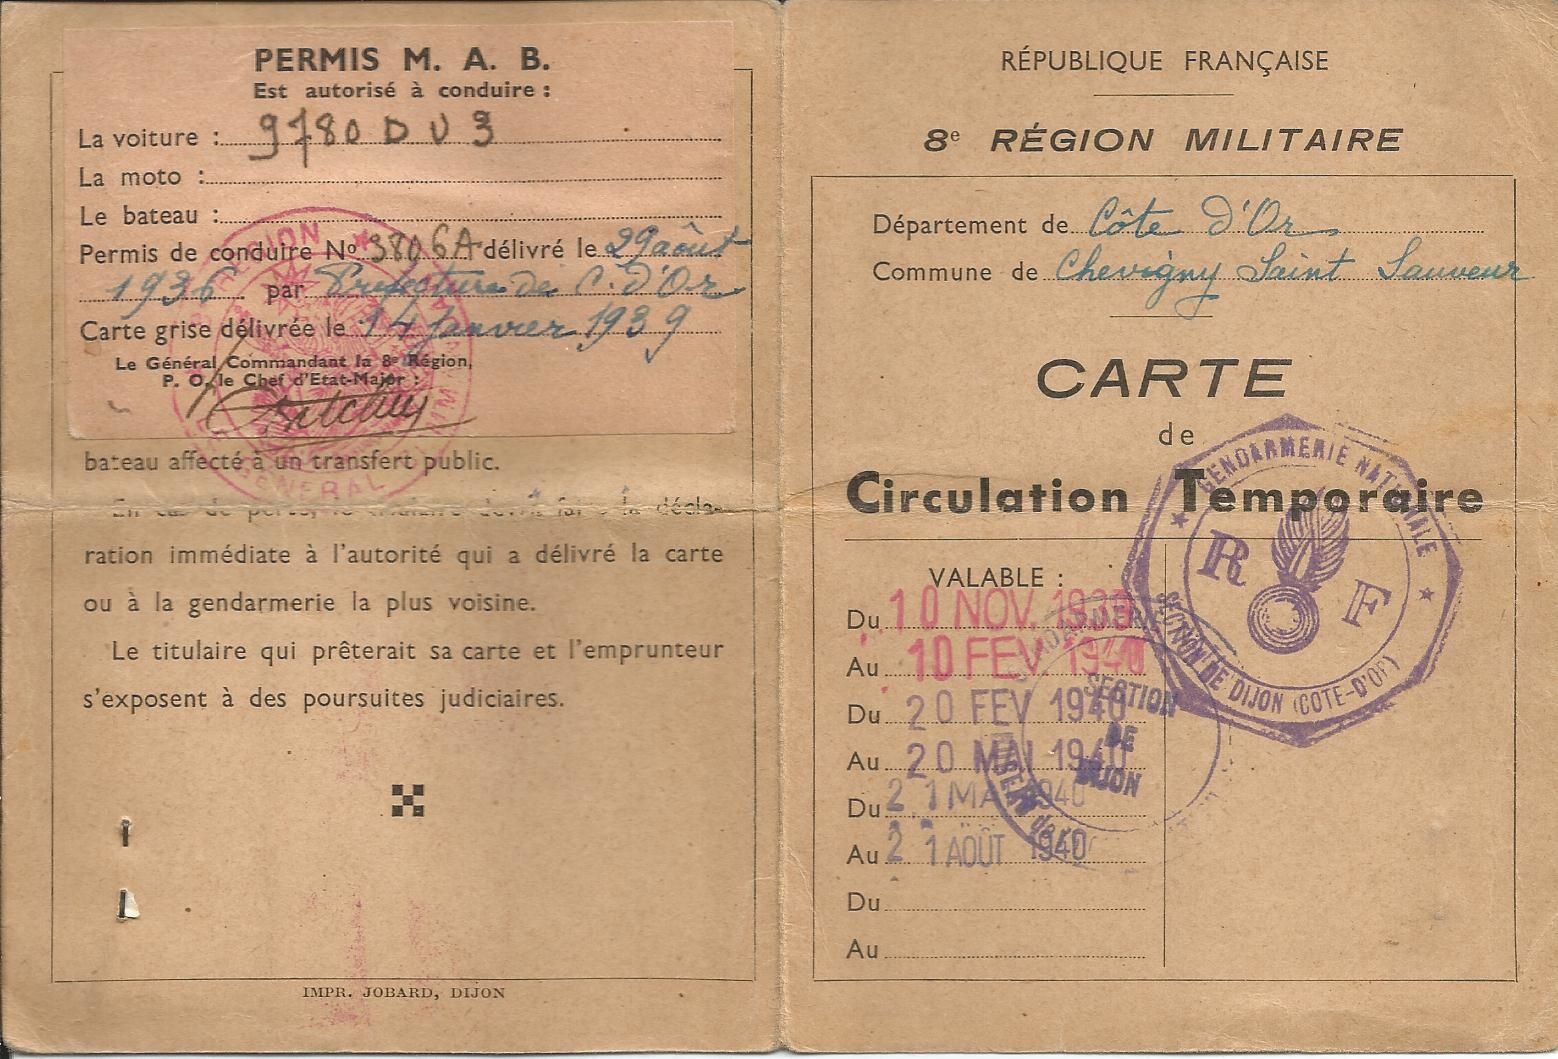 PERMIS M. A. B.
Est autorisé à conduire :
La voiture : 9780 D U 3
La moto :
Le bateau :
Permis de conduire Nº 3806A délivré le 29 août
1936 par Préfecture de C. d'Or
Carte grise délivrée le 14 Janvier 1939
Le Général Commandant la 8e Région,
P. O. le Chef d'Etat-Major :
bateau affecté à un transfert public.
En cas de perte, le titulaire devra faire la décla-
ration immédiate à l'autorité qui a délivré la carte
ou à la gendarmerie la plus voisine.
Le titulaire qui prêterait sa carte et l'emprunteur
s'exposent à des poursuites judiciaires.
IMPR. JOBARD, DIJON
RÉPUBLIQUE FRANÇAISE
8e RÉGION MILITAIRE
Département de Côte d'Or
Commune de Chevigny Saint Sauveur
CARTE
de
Circulation Temporaire
VALABLE :
Du 10 NOV. 1939
Au 10 FEV 1940
Du 20 FEV 1940
Au 20 MAI 1940
Du 21 MAI 1940
Au 21 AOÛT 1940
Du
Au
GENDARMERIE NATIONALE
R F
SECTION DE DIJON (COTE-D'OR)
SECTION
DE
DIJON